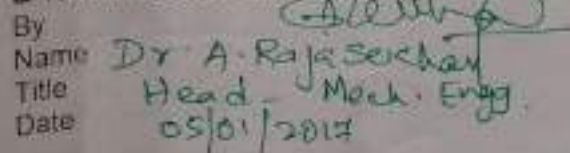 By
Name Dr. A. Rajasekhar
Title Head - Mech. Engg.
Date 05/01/2017